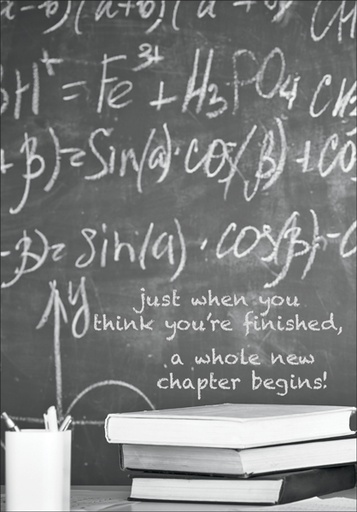 α-b)(a+b)(a
3H⁺ = Fe³⁺ + H₃PO₄ CH
+β)=Sin(a)·cos(β)+co
-β)= sin(a)·cos(β)-c
y
just when you
think you're finished,
a whole new
chapter begins!